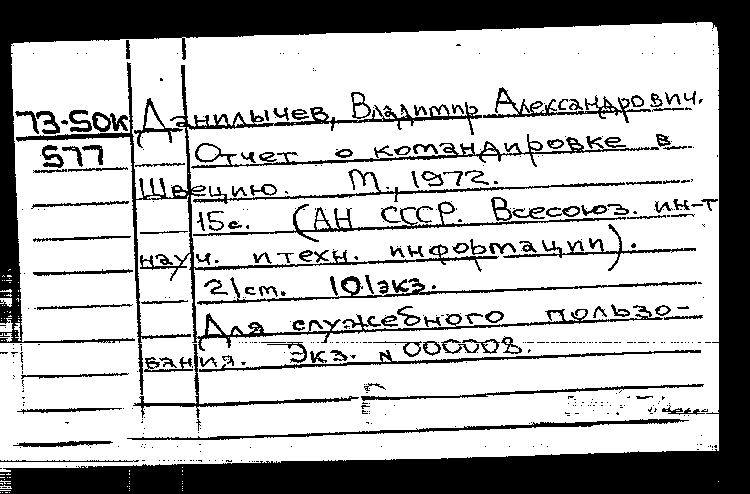 73-50к Данилычев, Владимир Александрович.
577 Отчет о командировке в
Швецию. М., 1972.
15с. (АН СССР. Всесоюз. ин-т
науч. и техн. информации).
21см. 101экз.
Для служебного пользо-
вания. Экз. N 000008.